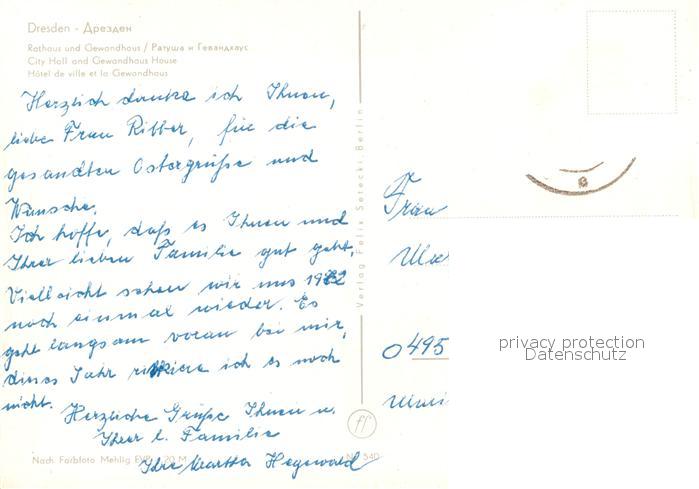 Dresden - Дрезден
Rathaus und Gewandhaus / Ратуша и Гевандхаус
City Hall and Gewandhaus House
Hôtel de ville et la Gewandhaus
Herzlich danke ich Ihnen,
liebe Frau Ribber, für die
gesandten Ostergrüße und
Wünsche.
Ich hoffe, daß es Ihnen und
Ihrer lieben Familie gut geht.
Vielleicht sehen wir uns 1982
noch einmal wieder. Es
geht langsam voran bei mir,
dieses Jahr riskiere ich es noch
nicht.
Herzliche Grüße Ihnen u.
Ihrer l. Familie
Ihre Martha Hegewald
Nach Farbfoto Mehlig EVP 20 M
540
Verlag Felix Setecki, Berlin
ff
Frau
0495
privacy protection
Datenschutz